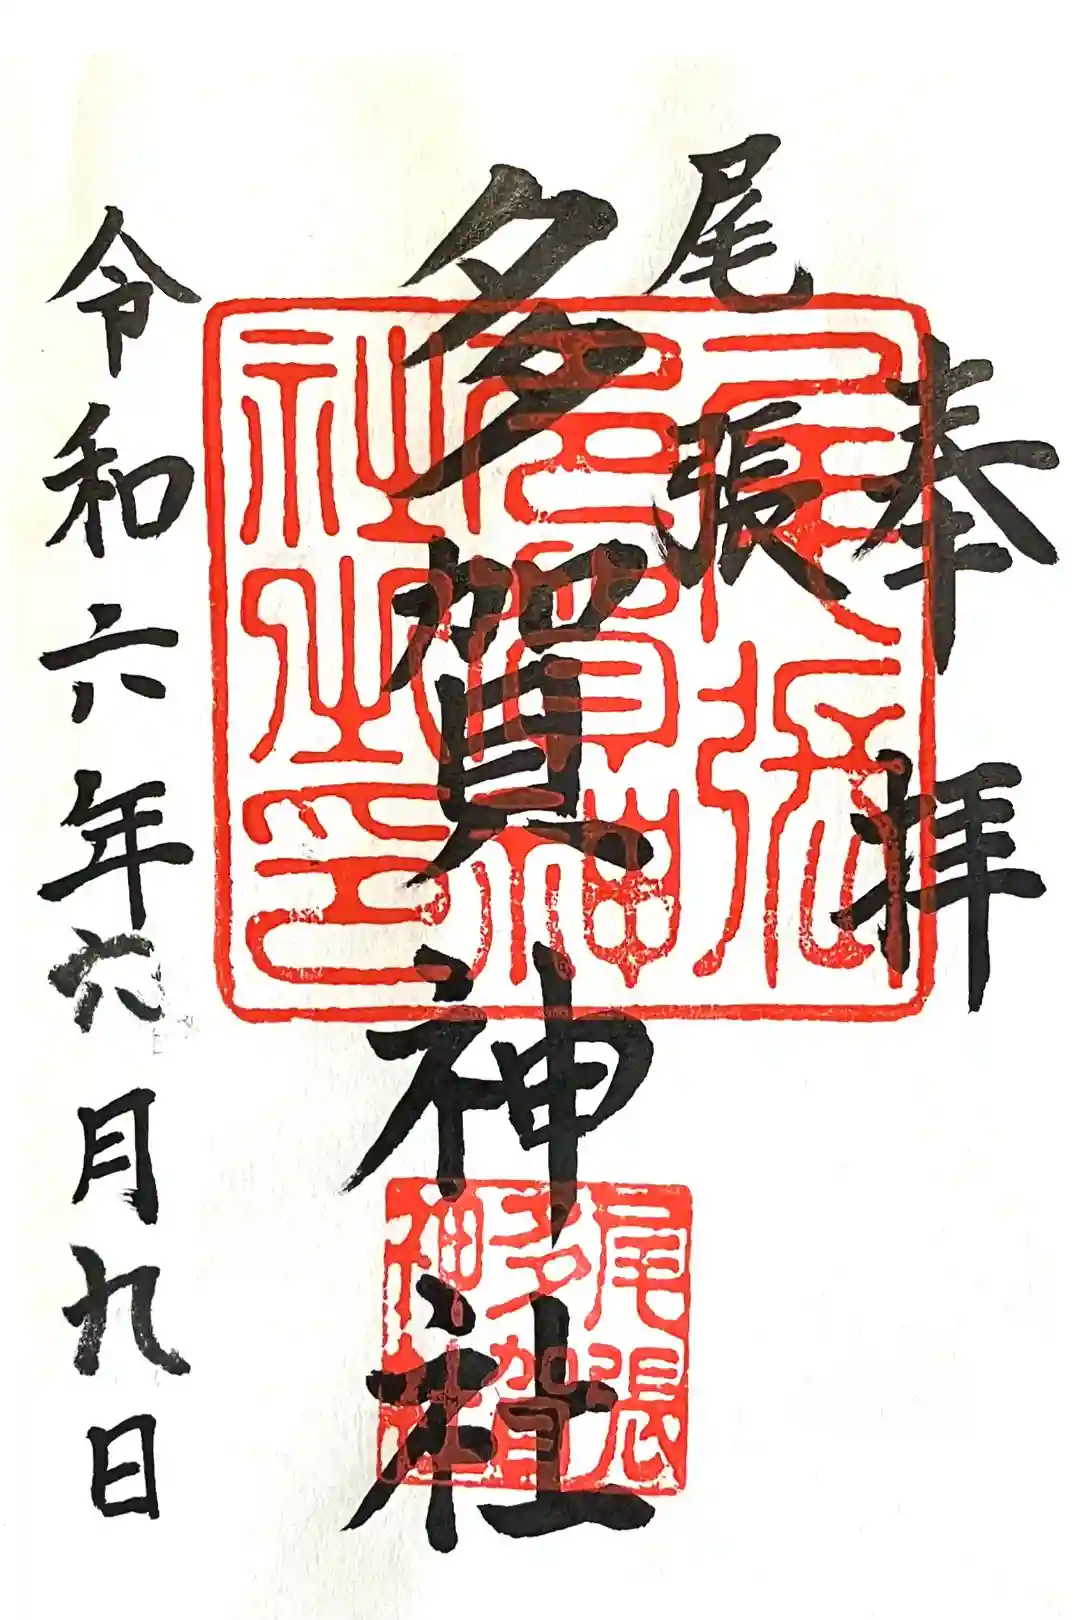 奉拝
尾張
多賀神社
令和六年六月九日
尾張
多賀神
社之印
尾張
多賀
神社